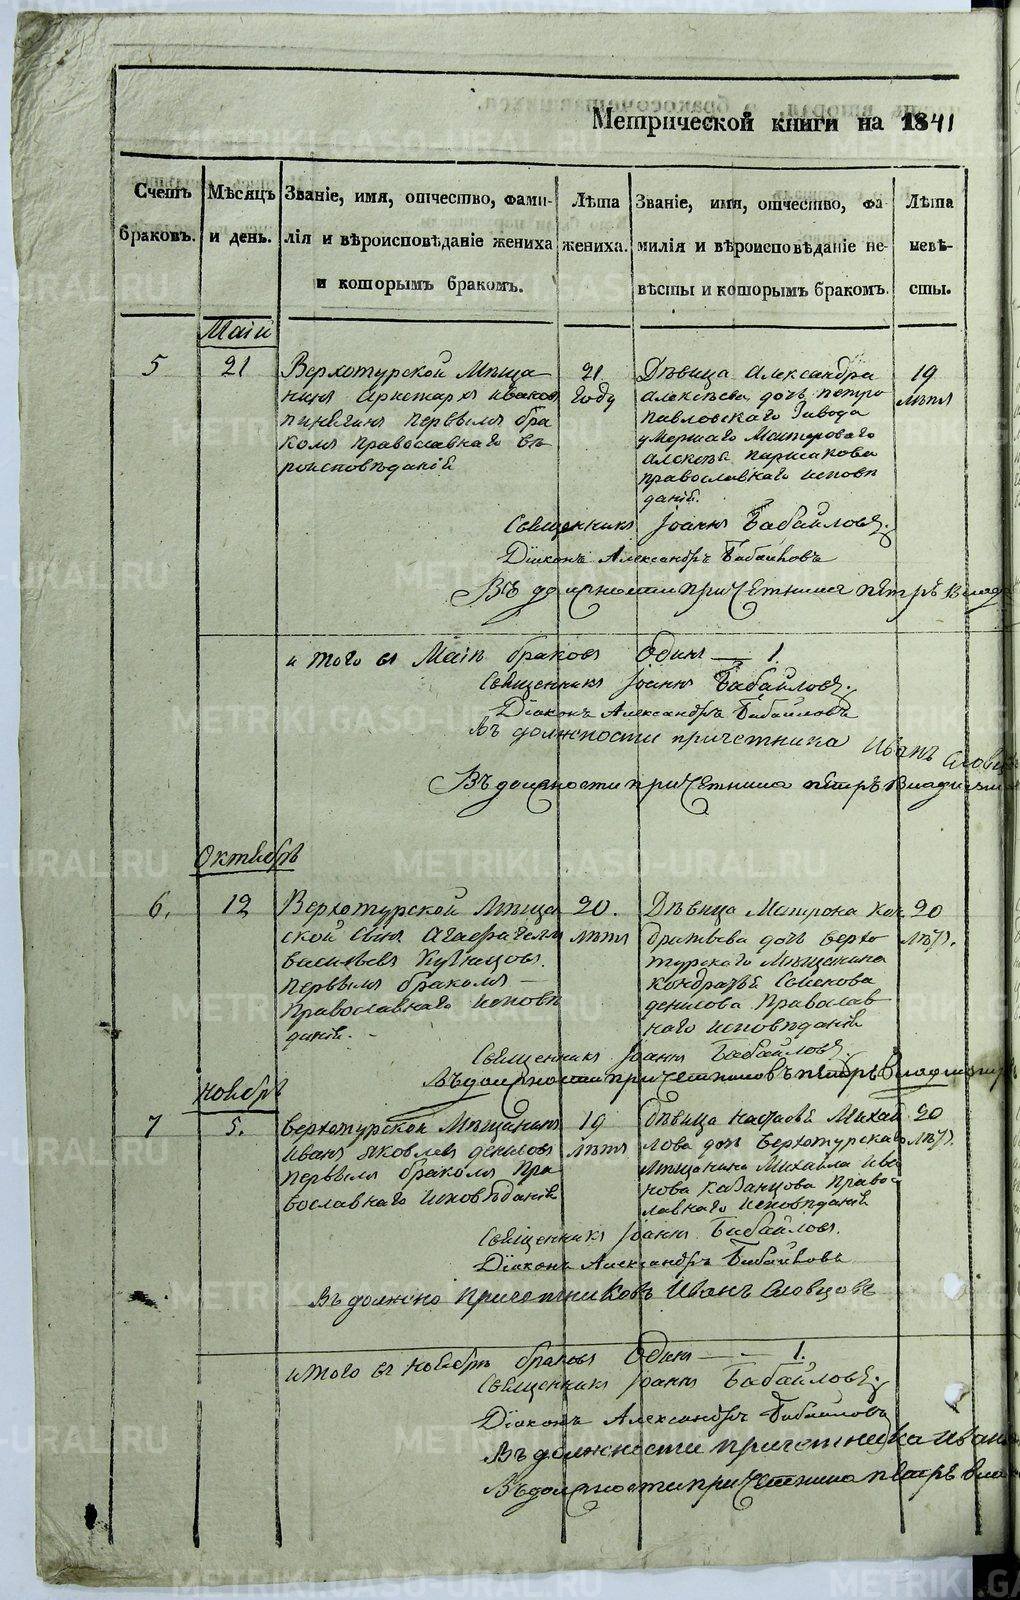 Метрической книги на 1841
Счетъ браковъ.
Мѣсяцъ и день.
Званіе, имя, отчество, фами-
лія и вѣроисповѣданіе жениха
и которымъ бракомъ.
Лѣта жениха.
Званіе, имя, отчество, фа-
милія и вѣроисповѣданіе не-
вѣсты и которымъ бракомъ.
Лѣта невѣ-
сты.
Маій
5
21
Верхотурской Мѣща-
нинъ Аристархъ Ивановъ
пинягинъ первымъ бра
комъ православнаго вѣ
роисповѣданій
21
году
Дѣвица Александра
алексѣева дочь петро
павловскаго Завода
умершаго Мастероваго
алексѣя
православнаго исповѣ
даній.
19
лѣтъ
Священникъ Іоаннъ Бабайловъ.
Діаконъ Александръ Бабайловъ
Въ должности причетника петръ
и того въ Маіѣ браковъ Одинъ — 1.
Священникъ Іоаннъ Бабайловъ.
Діаконъ Александръ Бабайловъ
Въ должности причетника Иванъ Словц
Въ должности причетника петръ
Октябрь
6.
12
Верхотурской Мѣщан
ской сынъ Агафангелъ
васильевъ Кузнецовъ.
первымъ бракомъ —
Православнаго исповѣ
даній. -
20.
лѣтъ
Дѣвица Матрона кон
дратьева дочь верхо
турскаго Мѣщанина
кондратья Семенова
денисова Православ
наго исповѣданій
20
лѣтъ.
Священникъ Іоаннъ Бабайловъ.
Въ должности причетниковъ петръ
Ноябрь
7
5.
Верхотурской Мѣщанинъ
Иванъ яковлевъ денисовъ
первымъ бракомъ Пра
вославнаго исповѣданій
19
лѣтъ
Дѣвица настасья Михай
лова дочь верхотурскаго
Мѣщанина Михайла Ива
нова казанцова Право
славнаго исповѣданій
20
лѣтъ.
Священникъ Іоаннъ Бабайловъ.
Діаконъ Александръ Бабайловъ
Въ должно причетниковъ Иванъ Словцовъ
и того въ ноябрѣ браковъ Одинъ — 1.
Священникъ Іоаннъ Бабайловъ.
Діаконъ Александръ Бабайловъ
Въ должности причетника Иванъ
Въ должности причетника петръ
METRIKI.GASO-URAL.RU